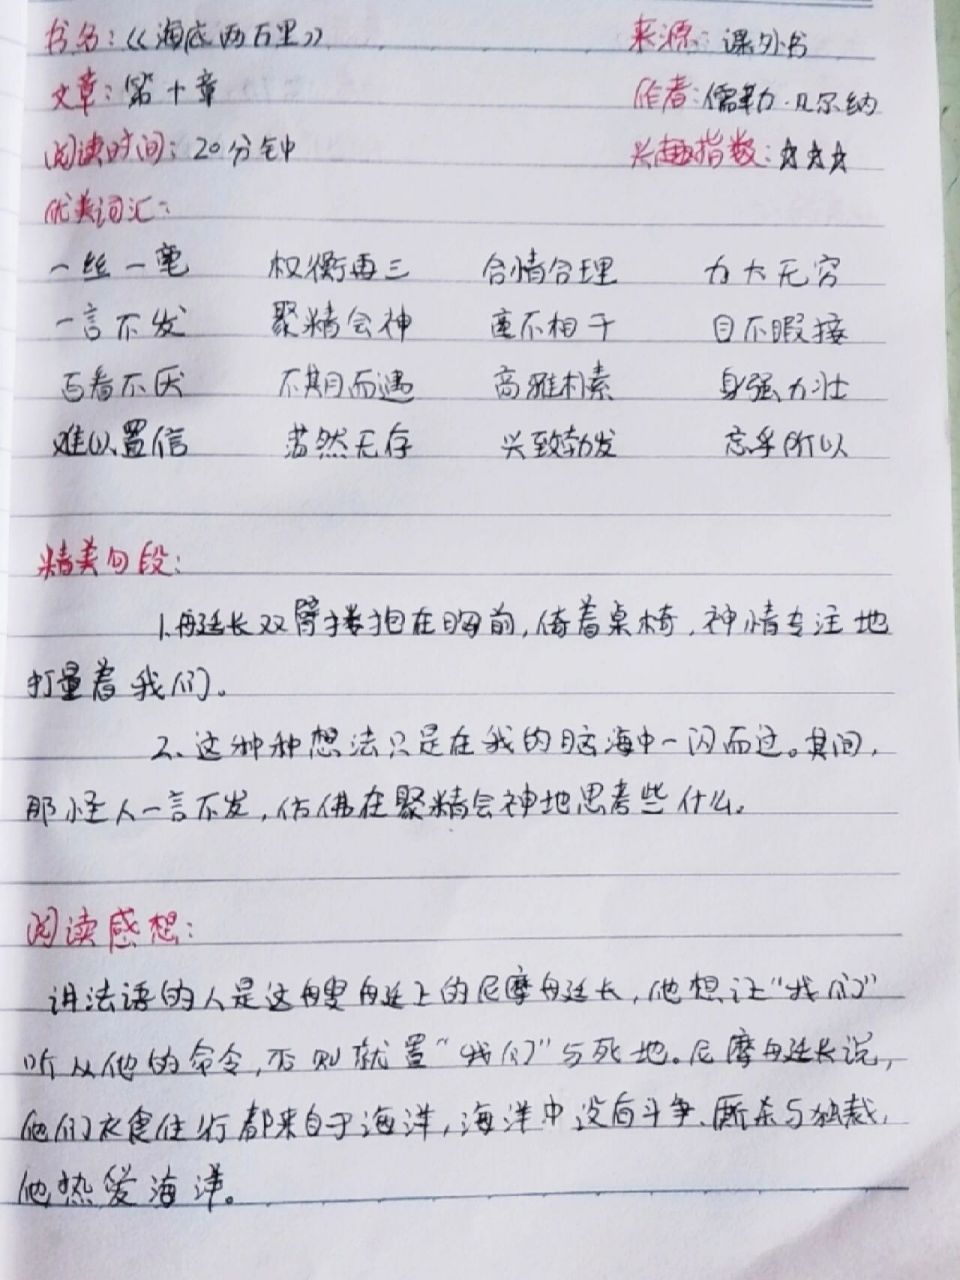 书名：《海底两万里》 来源：课外书
文章：第十章 作者：儒勒·凡尔纳
阅读时间：20分钟 兴趣指数：☆☆☆
优美词汇：
一丝一毫 权衡再三 合情合理 力大无穷
一言不发 聚精会神 毫不相干 目不暇接
百看不厌 不期而遇 高雅朴素 身强力壮
难以置信 荡然无存 兴致勃发 忘乎所以
精美句段：
1.舰艇长双臂搂抱在胸前，倚着桌椅，神情专注地
打量着我们。
2.这种种想法只是在我的脑海中一闪而过。其间，
那怪人一言不发，仿佛在聚精会神地思考些什么。
阅读感想：
讲法语的人是这艘舰艇上的尼摩艇长，他想让“我们”
听从他的命令，否则就置“我们”与死地。尼摩艇长说，
他们衣食住行都来自于海洋，海洋中没有斗争、厮杀与独裁，
他热爱海洋。